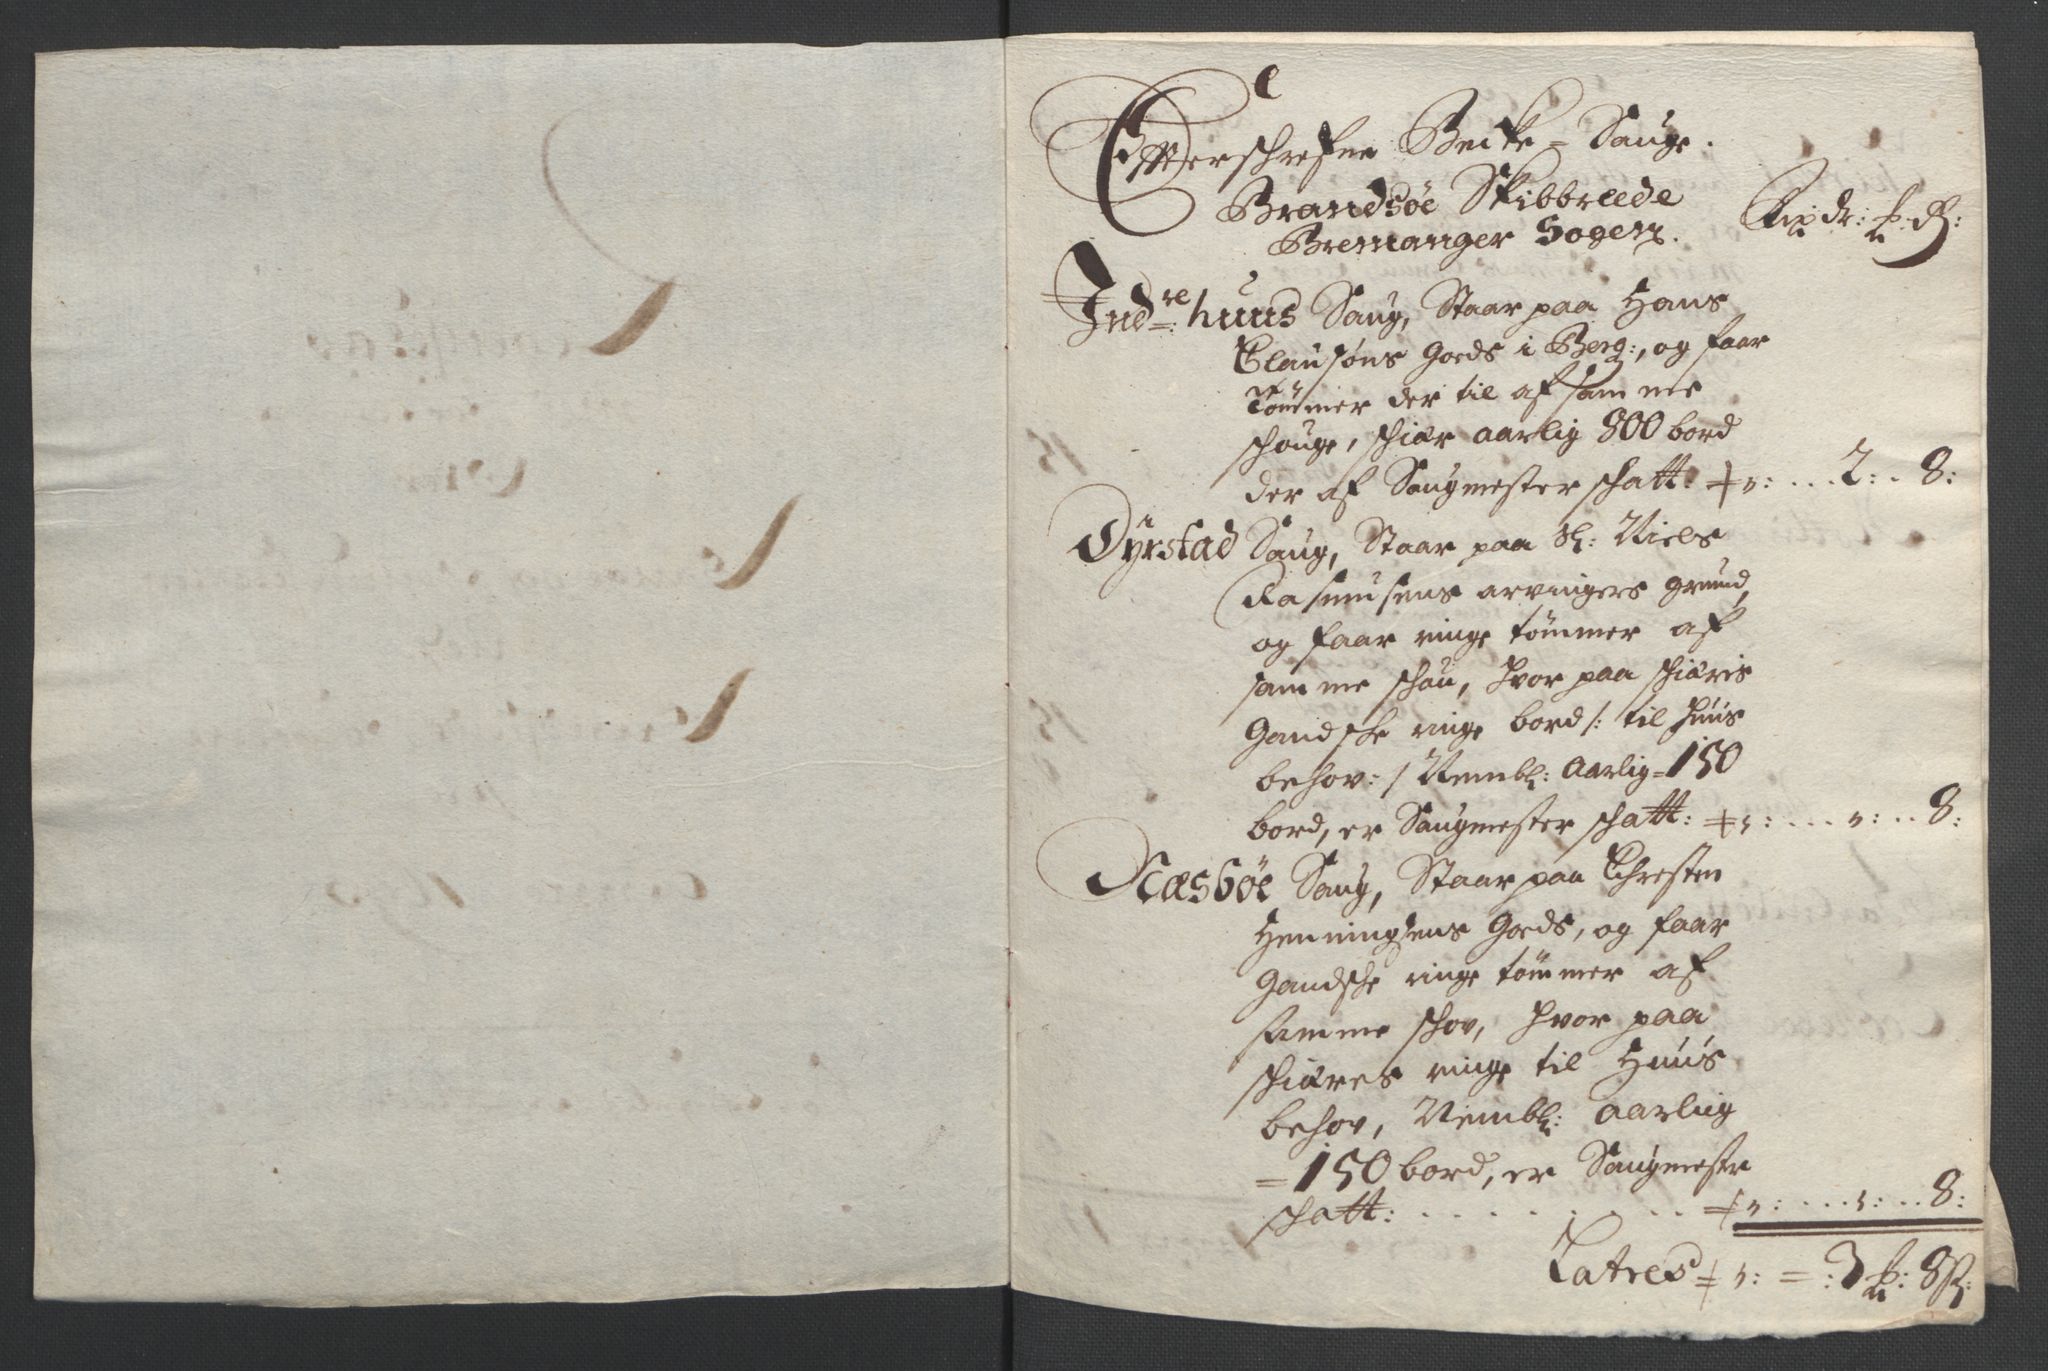 Effterschrefne Becke-Sauge.
Brandsöe Skibbreede
Bremanger Sogen.
Rixdr: ß:
Indre huus Saug, Staar paa Hans
Clausøns Goeds i Berg:, og faar
Tömmer der til af samme
schouge, schiær aarlig 800 bord
der af Saugmester schatt: 2: 8:
Öyrstad Saug, Staar paa Sl: Niels
Rasmusens arvingers grund,
og faar ringe tömmer af
samme schou, hvor paa schiæris
Gandsche ringe bord /: til huus
behov: / Nembl: aarlig = 150
bord, er Saugmester schatt: 8:
Næsböe Saug, Staar paa Chresten
Henningsens Goeds, og faar
Gandsche ringe tömmer af
samme schov, hvor paa
schiæres ringe til Huus
behov, Nembl: aarlig
= 150 bord, er Saugmestr
schatt: 8:
Latres 3 ß: 8